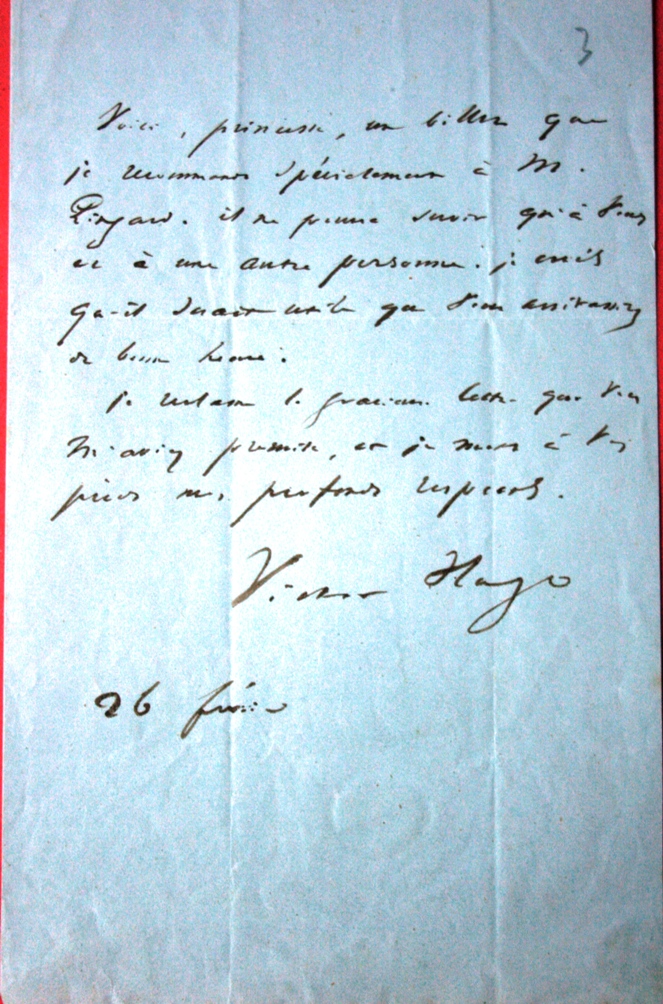 3
Voici, princesse, un billet que
je recommande spécialement à M.
Pingard. il ne pourra servir qu'à vous
et à une autre personne. je crois
qu'il serait utile que vous arrivassiez
de bonne heure.
je réclame la gracieuse lettre que vous
m'aviez promise, et je mets à vos
pieds mes profonds respects.
Victor Hugo
26 février